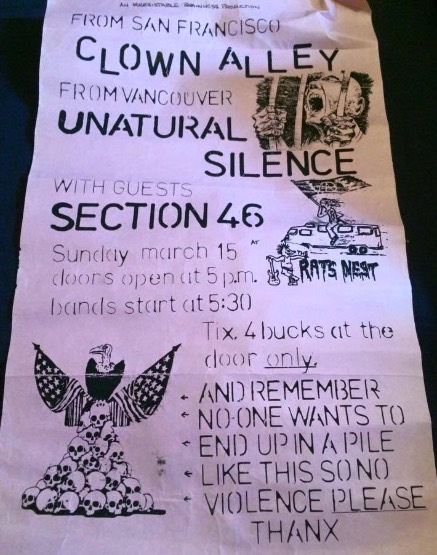 AN IRRESISTABLE BUSINESS PRODUCTION
FROM SAN FRANCISCO
CLOWN ALLEY
FROM VANCOUVER
UNATURAL
SILENCE
WITH GUESTS
SECTION 46
Sunday march 15
doors open at 5 p.m.
bands start at 5:30
AT
THE
RATS NEST
Tix. 4 bucks at the
door only.
← AND REMEMBER
← NO-ONE WANTS TO
← END UP IN A PILE
← LIKE THIS SO NO
← VIOLENCE PLEASE
THANX